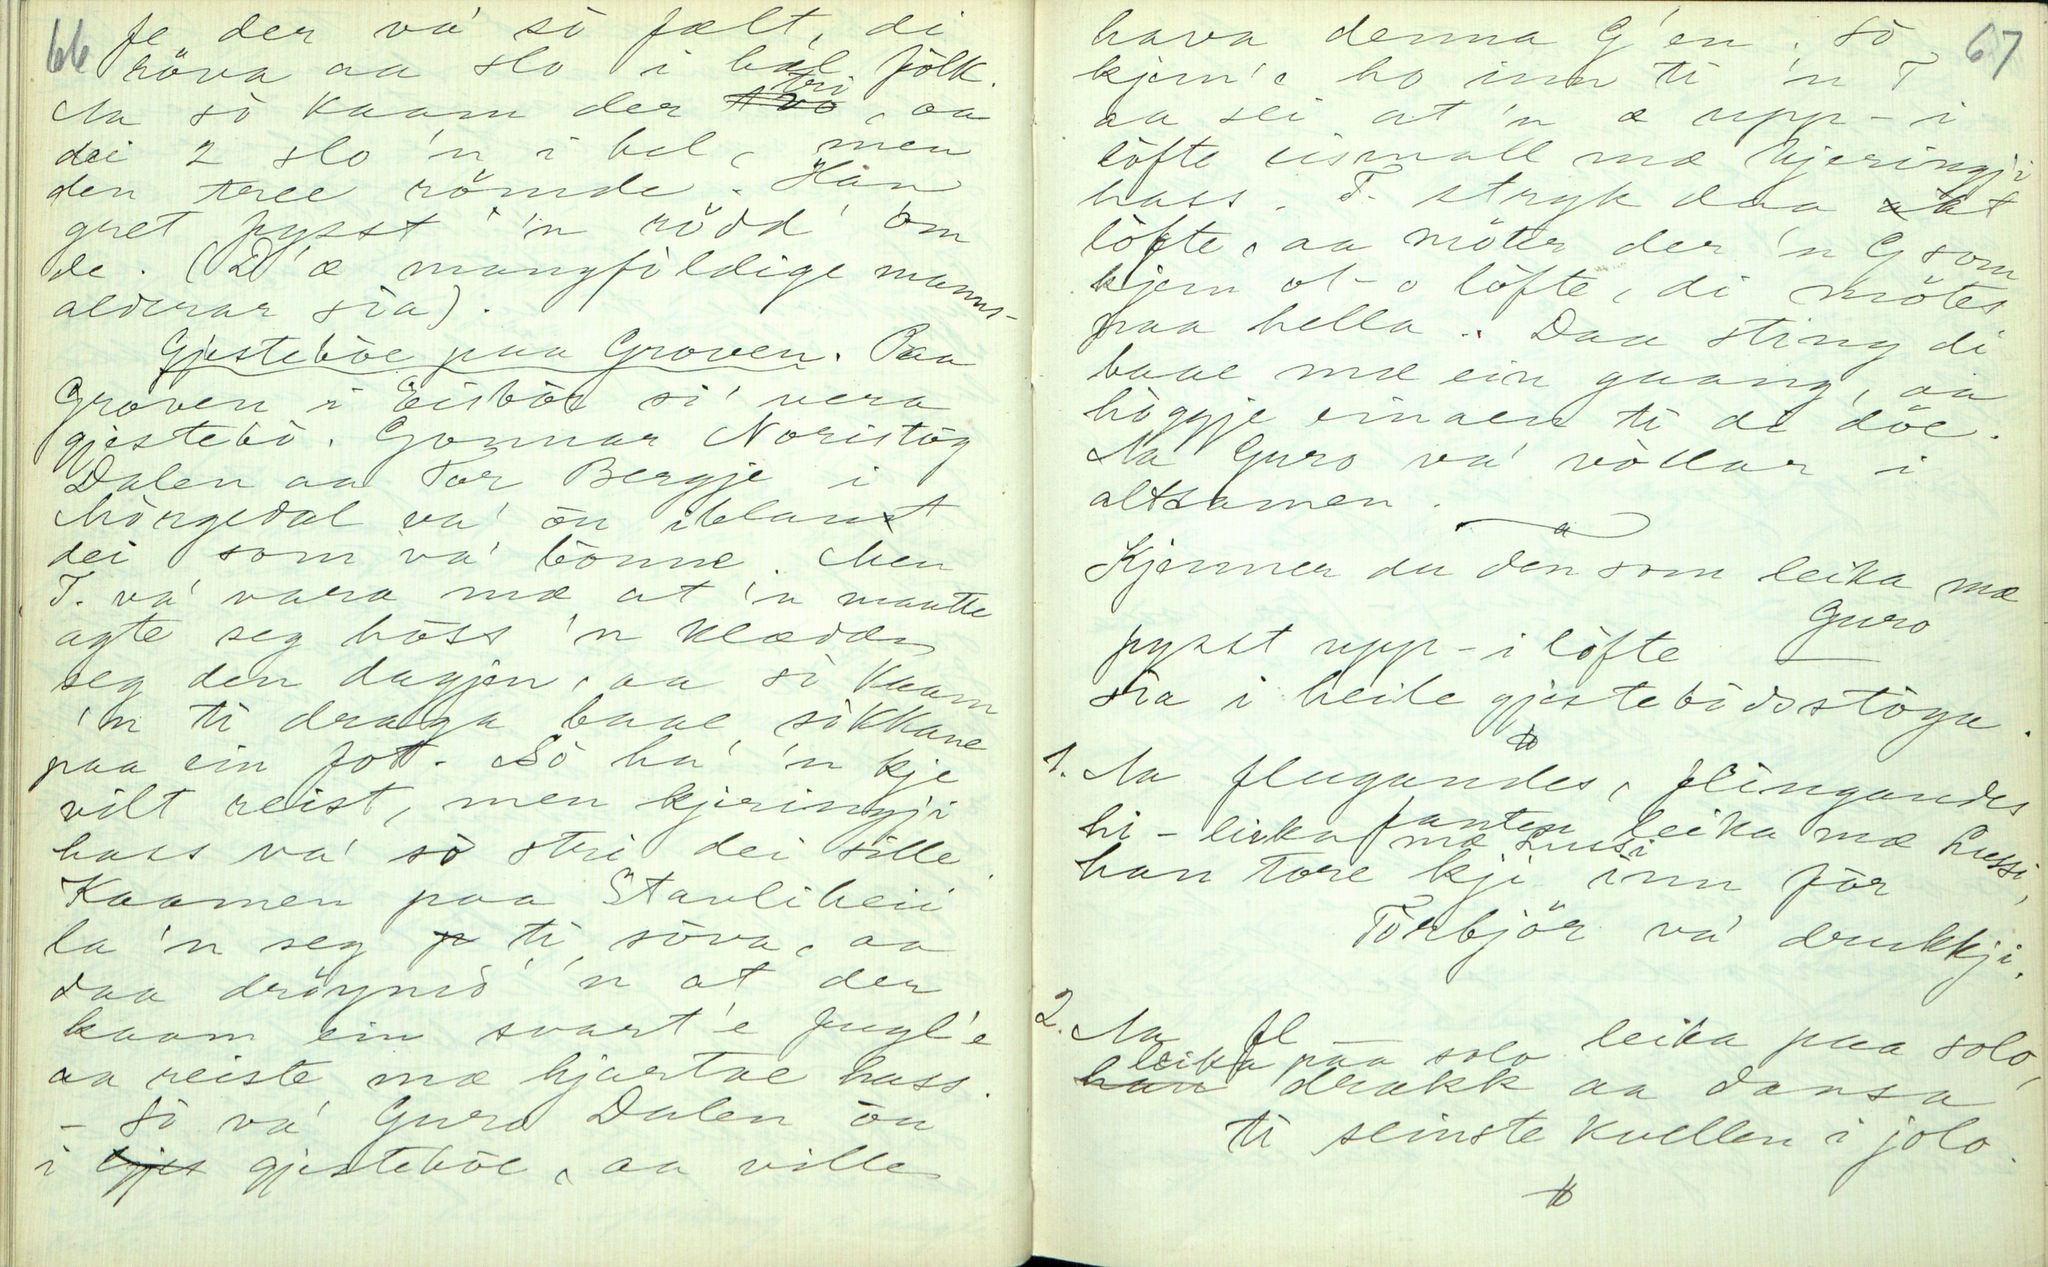 66
fe der va' sò fælt, di
röva aa slo i hæl fölk.
Aa sò kaam der tvo tri, aa
dei 2 slo 'n i hel, men
den tree römde. Han
gret fysst 'n rödd' om
de. (D'æ mangfoldige manns-
aldrar sia).
Gjesteböe paa Groven. Paa
Groven i Öisböe si' vera
gjestebö. Gonnar Noristög
Dalen aa Tor Bergje i
Mörgedal va' ön iblant
dei som va' bönne. Men
T. va' vara mæ at 'n maatte
agte seg höss 'n klædde
seg den dagjen, aa sò kaam
'n ti draga baae sökkane
paa ein fot. Sò ha' 'n kje
vilt reist, men kjeringji
hass va' sò stri dei sille.
Kaamen paa Stavliheii
la 'n seg ti söva, aa
daa dröymd' 'n at der
kaam ein svart'e fugl'e
aa reiste mæ hjartae hass.
- Sò va' Guro Dalen ön
i gjes gjesteböe, aa ville
67
hava denna G'en. Sò
kjem' ho inn ti 'n T
aa sei at 'n æ upp-i
löfte eismall mæ kjeringji
hass. T. stryk daa at
löfte, aa möter der 'n G som
kjem ot-o löfte, di mötes
paa hella. Daa sting di
baae mæ ein gaang, aa
höggje einaen ti di döe.
Aa Guro va' vòllar i
altsamen.
Kjenner du den som leika mæ
Guro
fysst upp-i löfte
sia i heile gjestebödsstögu.
1. Aa flugandes, flingandes
fanten leika mæ Lussi,
hi-leika mæ Lussi
han tore kji inn för
Törbjör va' drukkji.
2. Aa fl — leika paa solo,
leika paa solo
han drakk aa dansa
ti seinste kvellen i jolo.